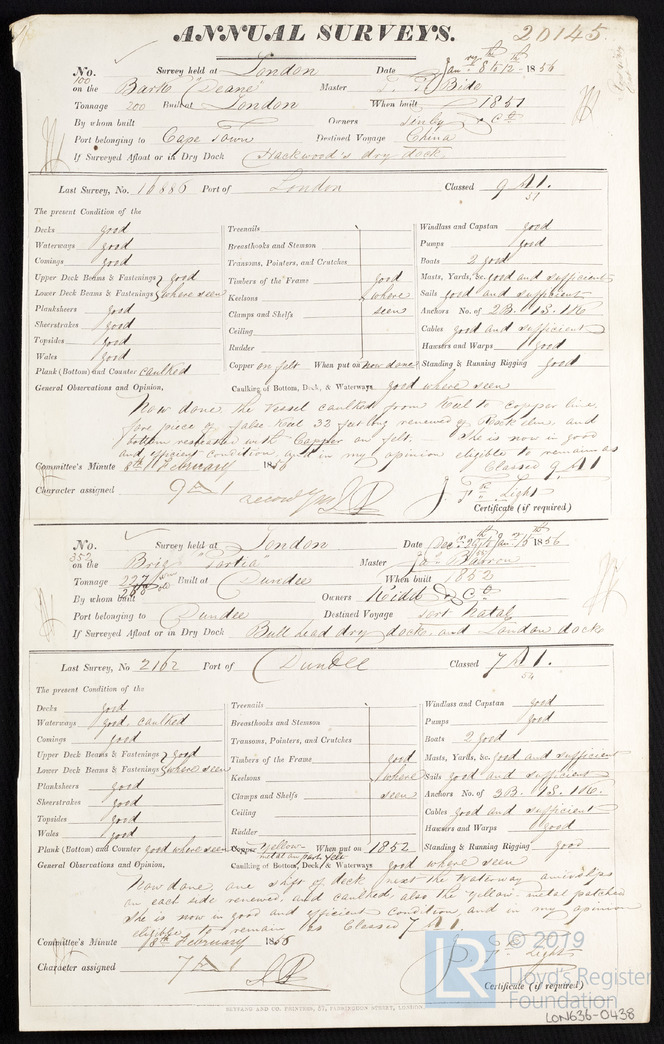 ANNUAL SURVEYS. 20145
No. 100 Survey held at London Date Jan.ry 8th 12th 1856
on the Bark "Deane" Master Bide
Tonnage 200 Built at London When built 1851
By whom built Owners & Co
Port belonging to Cape Town Destined Voyage China
If Surveyed Afloat or in Dry Dock dry dock
Last Survey, No. 16886 Port of London Classed 9 A 1.
51
The present Condition of the
Decks good Treenails Windlass and Capstan good
Waterways good Breasthooks and Stemson Pumps good
Comings good Transoms, Pointers, and Crutches Boats 2 good
Upper Deck Beams & Fastenings good Timbers of the Frame good Masts, Yards, &c. good and sufficient
Lower Deck Beams & Fastenings where seen Keelsons where Sails good and sufficient
Planksheers good Clamps and Shelfs seen Anchors No. of 2B. 1S. 1K.
Sheerstrakes good Ceiling Cables good and sufficient
Topsides good Rudder Hawsers and Warps good
Wales good Copper on felt When put on now done Standing & Running Rigging good
Plank (Bottom) and Counter caulked
General Observations and Opinion, Caulking of Bottom, Deck, & Waterways good where seen
Now done, the vessel caulked from Keel to copper line,
fore piece of false Keel 32 feet long renewed of Rock elm, and
bottom resheathed with Copper on felt. She is now in good
and efficient condition, and in my opinion eligible to remain as
Committee's Minute 8th February 1856 Classed 9 A 1
Character assigned 9 A 1 Light
Certificate (if required)
No. 352 Survey held at London Date Dec.r 26th Jan.y 15th 1856
on the Brig "Portia" Master Ja.s Barron
Tonnage 227 Built at Dundee When built 1852
By whom built Owners Kidd & Co
Port belonging to Dundee Destined Voyage Port Natal
If Surveyed Afloat or in Dry Dock Bull head dry dock, and London docks
Last Survey, No 2162 Port of Dundee Classed 7 A 1.
54
The present Condition of the
Decks good Treenails Windlass and Capstan good
Waterways good, caulked Breasthooks and Stemson Pumps good
Comings good Transoms, Pointers, and Crutches Boats 2 good
Upper Deck Beams & Fastenings good Timbers of the Frame good Masts, Yards, &c. good and sufficient
Lower Deck Beams & Fastenings where seen Keelsons where Sails good and sufficient
Planksheers good Clamps and Shelfs seen Anchors No. of 2B. 1S. 1K.
Sheerstrakes good Ceiling Cables good and sufficient
Topsides good Rudder Hawsers and Warps good
Wales good Copper Yellow metal on part felt When put on 1852 Standing & Running Rigging good
Plank (Bottom) and Counter good where seen
General Observations and Opinion, Caulking of Bottom, Deck, & Waterways good where seen
Now done, one shift of deck next the Waterway amidships
on each side renewed, and caulked, also the yellow metal patched
She is now in good and efficient condition, and in my opinion
eligible to remain as Classed 7 A 1.
Committee's Minute 18th February 1856
Character assigned 7 A 1 Light
Certificate (if required)
SEYFANG AND CO. PRINTERS, 57, FARRINGDON STREET, LONDON.
LR © 2019
Lloyd's Register
Foundation
LON636-0438